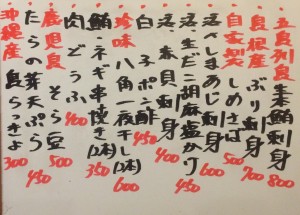 五島列島 生本鮪刺 800
島根産 ぶり刺身 700
自家製 しめさば 500
活〆しまあじ刺身 600
活、生だこ胡麻塩かり 450
活、つぶ貝刺身 400
白子ポン酢 450
珍味 八角一夜干し(2本) 600
鮪・ネギ串焼き(2本) 350
肉どうふ 400
鹿児島産 そら豆 500
たらの芽天ぷら 450
沖縄産 島らっきょ 300